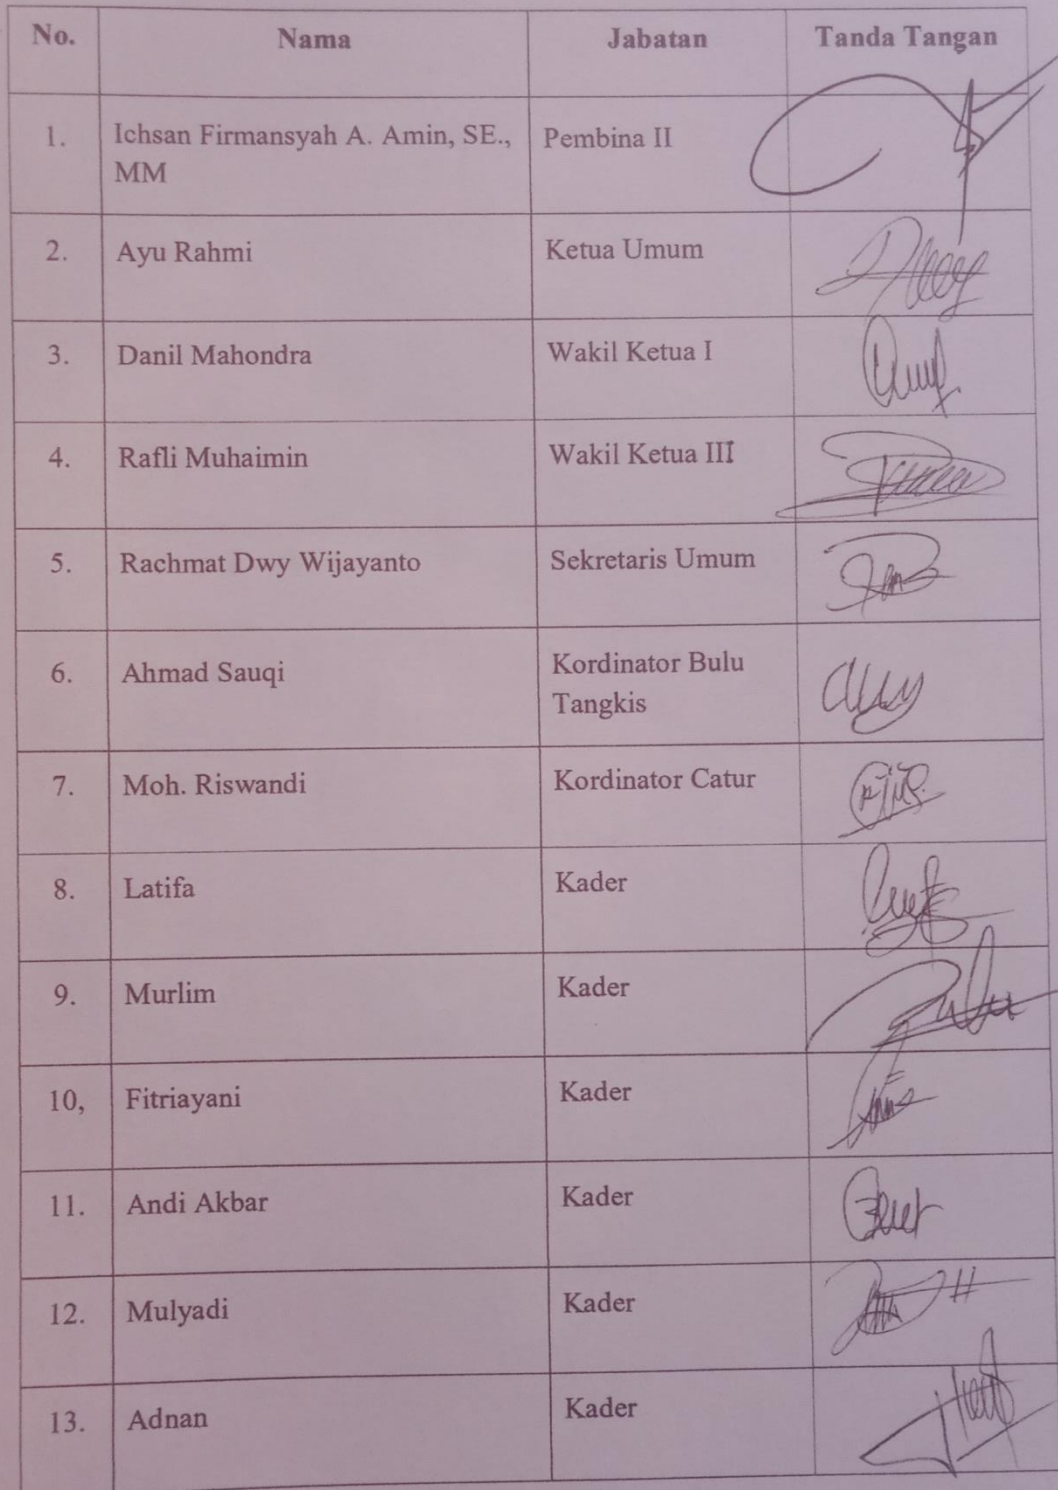 No. Nama Jabatan Tanda Tangan
1. Ichsan Firmansyah A. Amin, SE., Pembina II
MM
2. Ayu Rahmi Ketua Umum
3. Danil Mahondra Wakil Ketua I
4. Rafli Muhaimin Wakil Ketua III
5. Rachmat Dwy Wijayanto Sekretaris Umum
6. Ahmad Sauqi Kordinator Bulu
Tangkis
7. Moh. Riswandi Kordinator Catur
8. Latifa Kader
9. Murlim Kader
10, Fitriayani Kader
11. Andi Akbar Kader
12. Mulyadi Kader
13. Adnan Kader